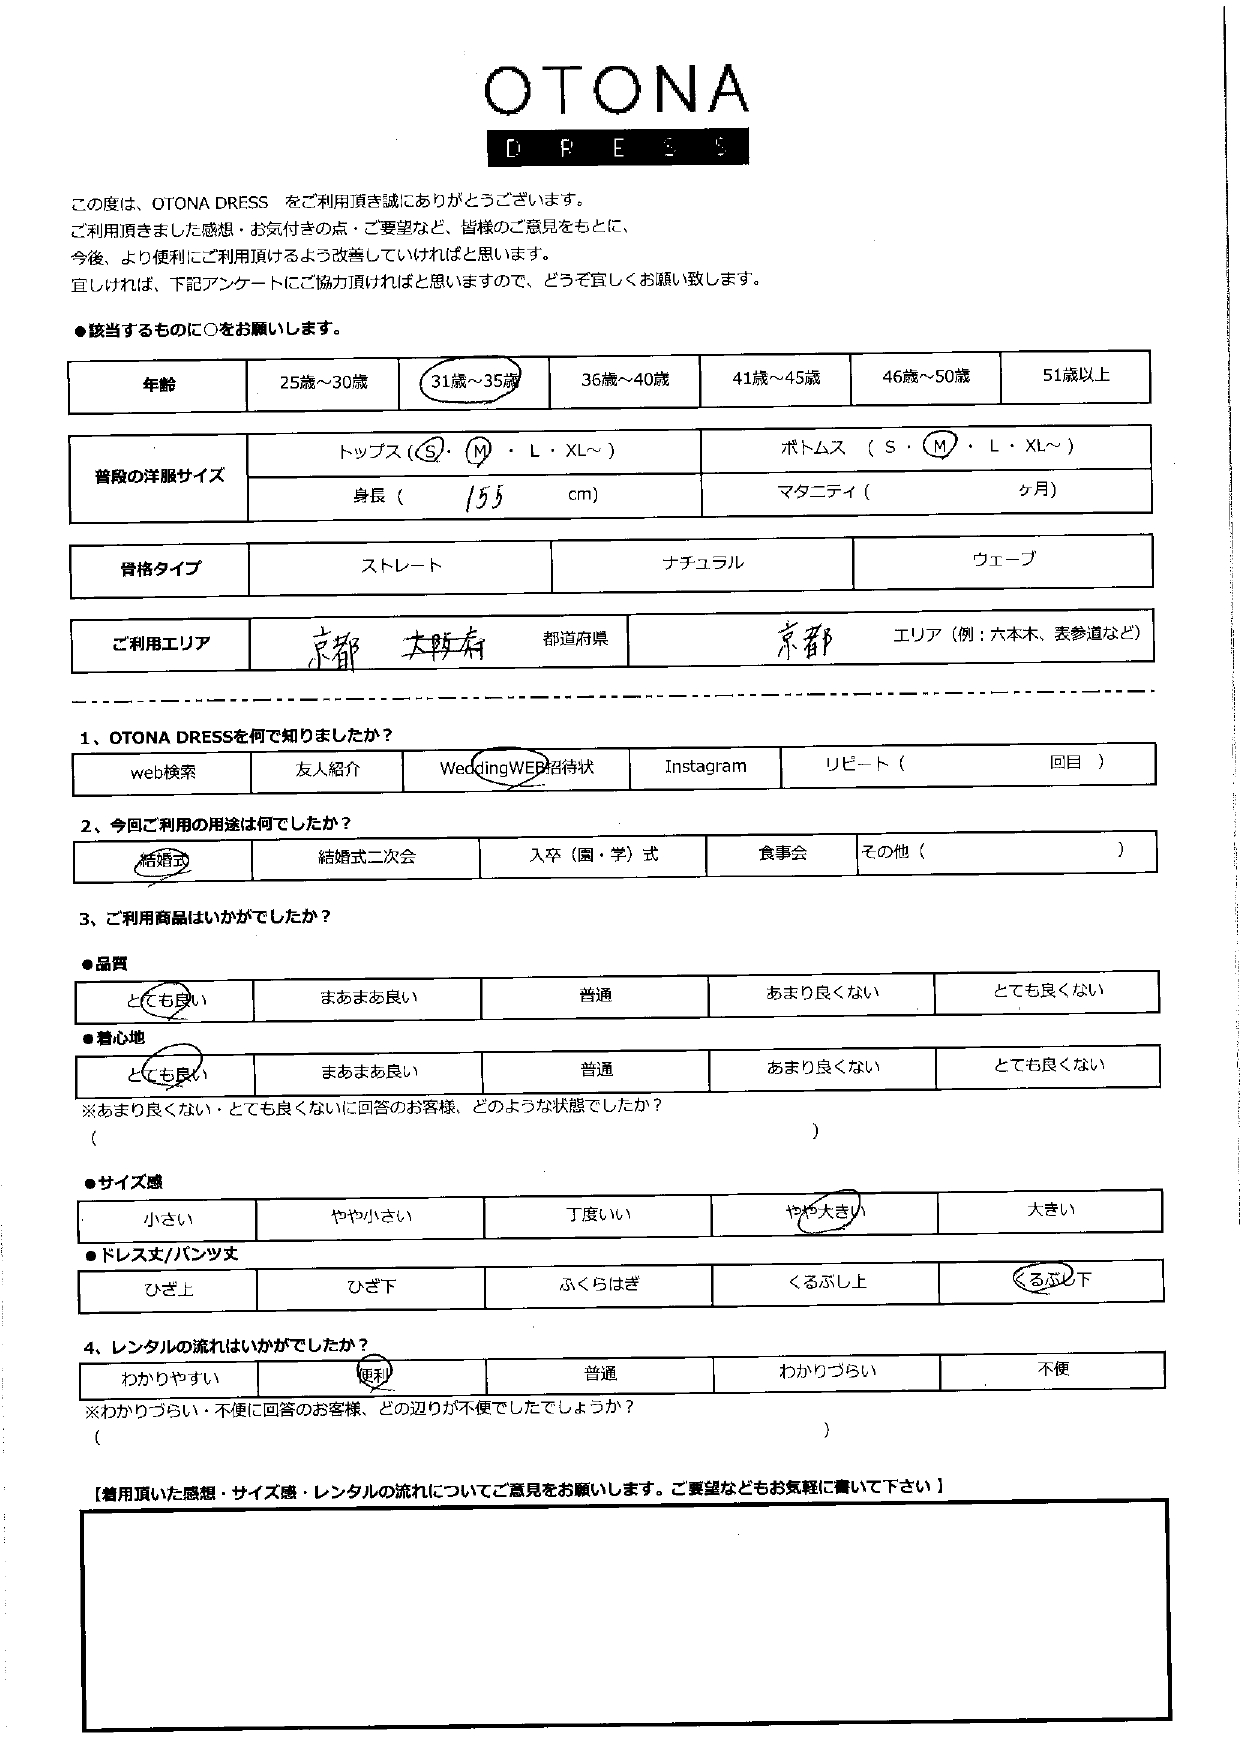 OTONA
DRESS
この度は、OTONA DRESS　をご利用頂き誠にありがとうございます。
ご利用頂きました感想・お気付きの点・ご要望など、皆様のご意見をもとに、
今後、より便利にご利用頂けるよう改善していければと思います。
宜しければ、下記アンケートにご協力頂ければと思いますので、どうぞ宜しくお願い致します。
●該当するものに○をお願いします。
年齢 25歳～30歳 31歳～35歳 36歳～40歳 41歳～45歳 46歳～50歳 51歳以上
普段の洋服サイズ トップス (S・M・L・XL～) ボトムス (S・M・L・XL～)
身長 ( 155 cm) マタニティ ( ケ月)
骨格タイプ ストレート ナチュラル ウェーブ
ご利用エリア 京都 大阪府 都道府県 京都 エリア（例：六本木、表参道など）
1、OTONA DRESSを何で知りましたか？
web検索 友人紹介 WeddingWEB招待状 Instagram リピート ( 回目 )
2、今回ご利用の用途は何でしたか？
結婚式 結婚式二次会 入卒（園・学）式 食事会 その他 ( )
3、ご利用商品はいかがでしたか？
●品質
とても良い まあまあ良い 普通 あまり良くない とても良くない
●着心地
とても良い まあまあ良い 普通 あまり良くない とても良くない
※あまり良くない・とても良くないに回答のお客様、どのような状態でしたか？
( )
●サイズ感
小さい やや小さい 丁度いい やや大きい 大きい
●ドレス丈/パンツ丈
ひざ上 ひざ下 ふくらはぎ くるぶし上 くるぶし下
4、レンタルの流れはいかがでしたか？
わかりやすい 便利 普通 わかりづらい 不便
※わかりづらい・不便に回答のお客様、どの辺りが不便でしたでしょうか？
( )
【着用頂いた感想・サイズ感・レンタルの流れについてご意見をお願いします。ご要望などもお気軽に書いて下さい】